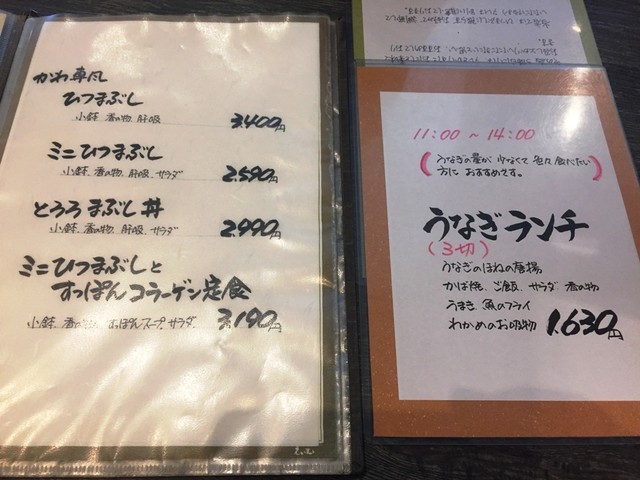 かわ専風
ひつまぶし
小鉢、香の物、肝吸
3,400円
ミニひつまぶし
小鉢、香の物、肝吸、サラダ
2,590円
とろろまぶし丼
小鉢、香の物、肝吸、サラダ
2,990円
ミニひつまぶしと
すっぽんコラーゲン定食
小鉢、香の物、すっぽんスープ、サラダ
3,190円
11:00 ~ 14:00
(うなぎの量が少なくて色々食べたい
方におすすめです。)
うなぎランチ
(3切)
うなぎのほねの唐揚
かば焼、ご飯、サラダ、香の物
うまき、魚のフライ
わかめのお吸物
1,630円